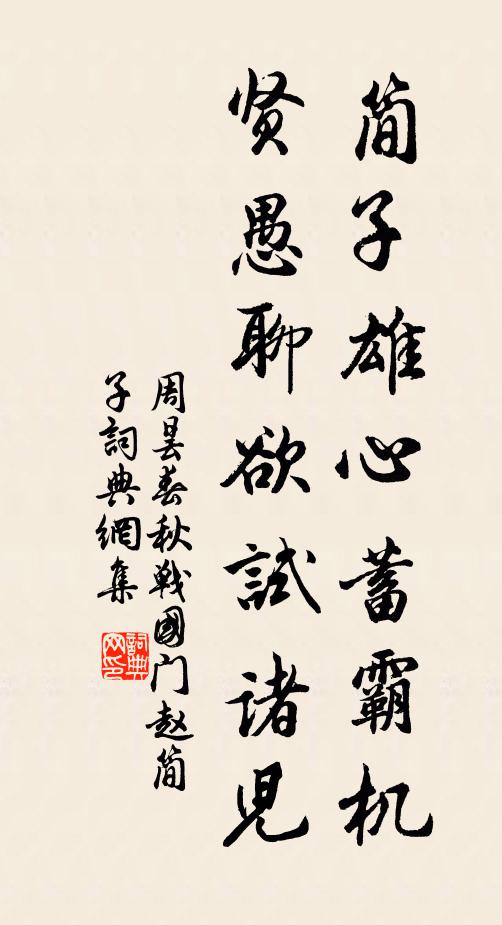 简子雄心蓄霸机
贤愚聊欲試諸児
周昙春秋戰國门赵简
子詞典網集
詞典网印